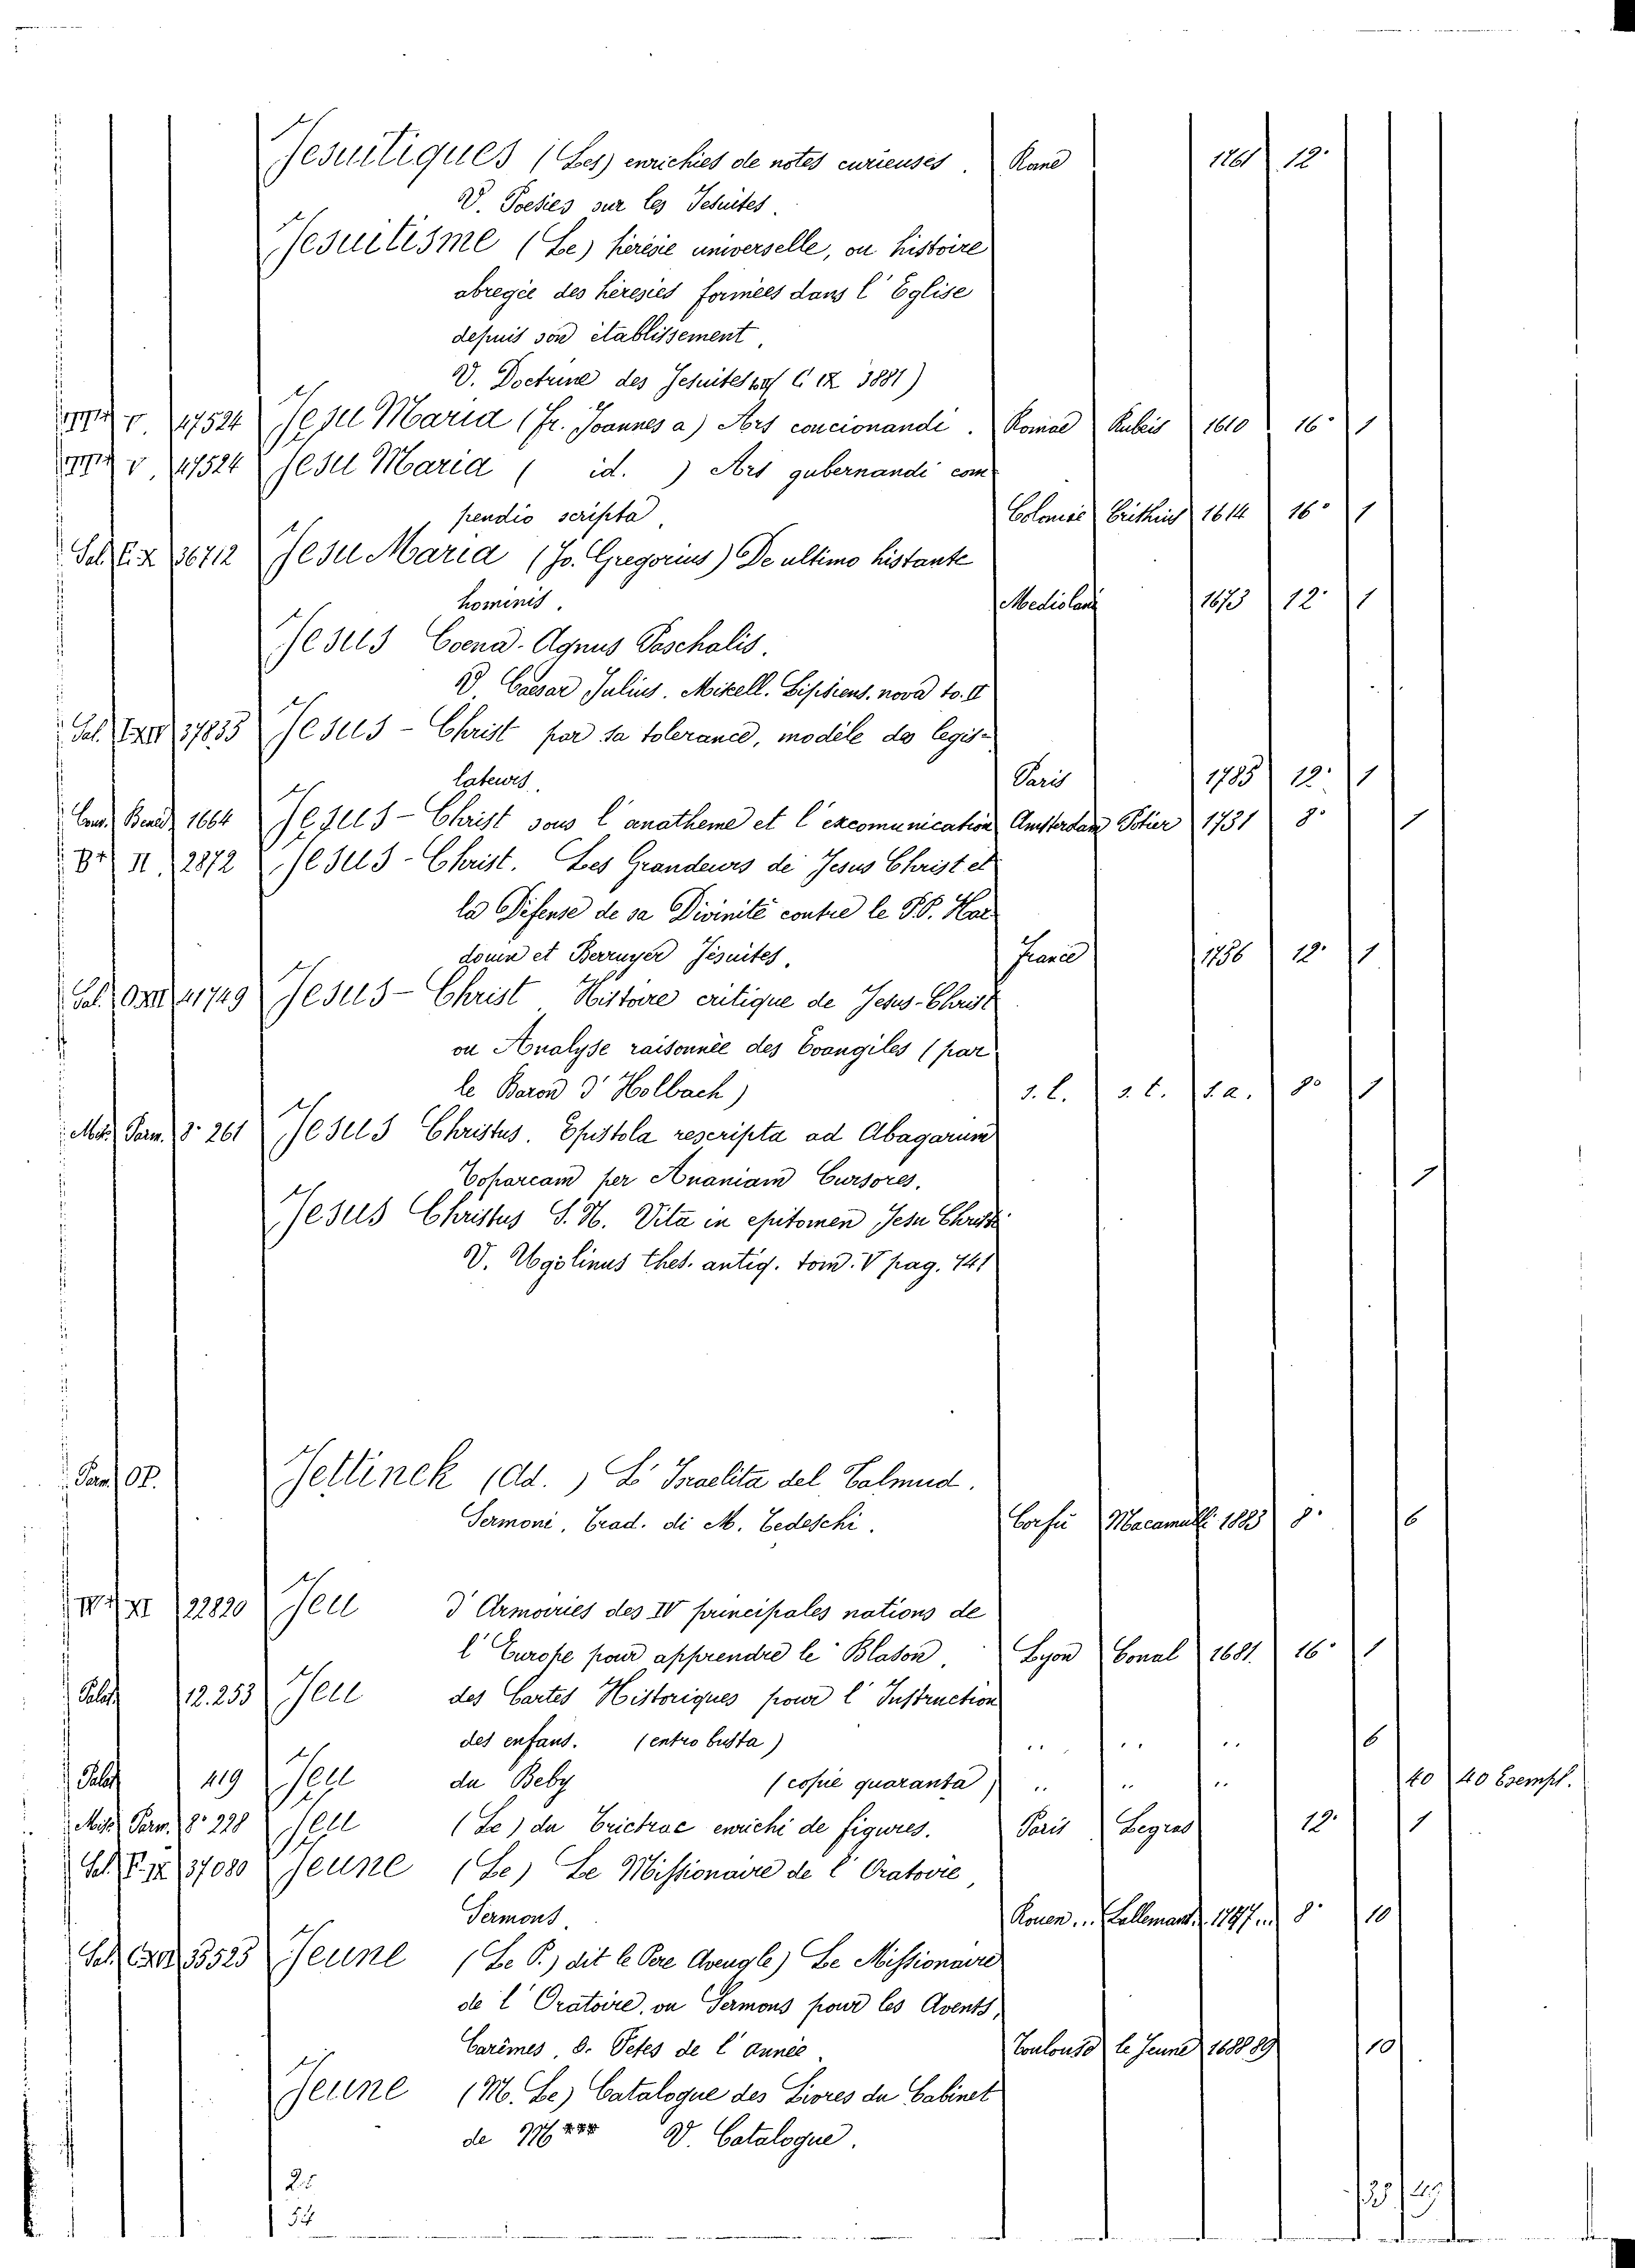 Jesuitiques (Les) enrichies de notes curieuses. 1761 12°
V. Poesies sur les Jesuites.
Jesuitisme (Le) hérésie universelle, ou histoire
abregée des héresies formées dans l'Eglise
depuis son établissement,
V. Doctrine des Jesuites 3881)
47524 Jesu Maria (Fr. Joannes a) Ars concionandi. Romae Rubeis 1610 16° 1
47524 Jesu Maria ( id. ) Ars gubernandi com
pendio scripta, Coloniae 1614 16° 1
36712 Jesu Maria (Jo. Gregorius) De ultimo histante
hominis. Mediolani 1673 12° 1
Jesus Coena. Agnus Paschalis.
V. Caesar Julius. Misell. Lipsiens. nova to. II
37835 Jesus-Christ par sa tolerance, modèle des legis-
lateurs. Paris 1785 12° 1
Conv. Bened. 1664 Jesus-Christ sous l'anatheme et l'excomunication Amsterdam Potier 1731 8° 1
II 2872 Jesus-Christ. Les Grandeurs de Jesus Christ et
la Défense de sa Divinité contre le P.P. Har
douin et Berruyer Jésuites. France 1756 12° 1
41749 Jesus-Christ Histoire critique de Jesus-Christ
ou Analyse raisonnée des Evangiles (par
le Baron d'Holbach) s. l. s. t. s. a. 8° 1
Parm. 8° 261 Jesus Christus. Epistola rescripta ad Abagarum
Toparcam per Ananiam Cursores. 1
Jesus Christus S. N. Vita in epitomen Jesu Christi
V. Ugolinus thes. antiq. tom. V pag. 741
Jellinek (Ad.) L'Israelita del Talmud.
Sermoni, Trad. di M. Tedeschi. Corfù 1883 8° 6
XI 22820 Jeu d'Armoiries des IV principales nations de
l'Europe pour apprendre le Blason, Lyon 1681. 16° 1
Palat 12.253 Jeu des Cartes Historiques pour l'Instruction
des enfans. (entro busta) .. .. .. 6
Palat 419 Jeu du Beby (copie quaranta) .. .. .. 40 40 Esempl.
Parm. 8° 228 Jeu (Le) du Trictrac enrichi de figures. Paris Legras 12° 1
37080 Jeune (Le) Le Missionaire de l'Oratorie,
Sermons. Rouen... Lallemant. 8° 10
33525 Jeune (Le P.) dit le Pere Aveugle) Le Missionaire
de l'Oratoire, ou Sermons pour les Avents,
Carêmes, & Fetes de l'année. Toulouse le Jeune 1688 89 10
Jeune (M. Le) Catalogue des Livres du Cabinet
de M*** V. Catalogue.
25
54